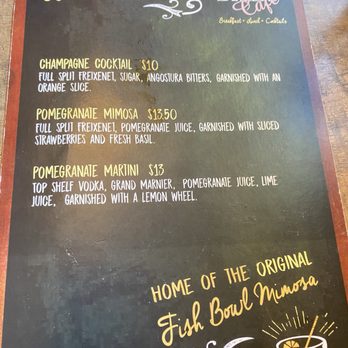 Café
Breakfast • Lunch • Cocktails
CHAMPAGNE COCKTAIL $10
FULL SPLIT FREIXENET, SUGAR, ANGOSTURA BITTERS, GARNISHED WITH AN
ORANGE SLICE.
POMEGRANATE MIMOSA $13.50
FULL SPLIT FREIXENET, POMEGRANATE JUICE, GARNISHED WITH SLICED
STRAWBERRIES AND FRESH BASIL.
POMEGRANATE MARTINI $13
TOP SHELF VODKA, GRAND MARNIER, POMEGRANATE JUICE, LIME
JUICE, GARNISHED WITH A LEMON WHEEL.
HOME OF THE ORIGINAL
Fish Bowl Mimosa